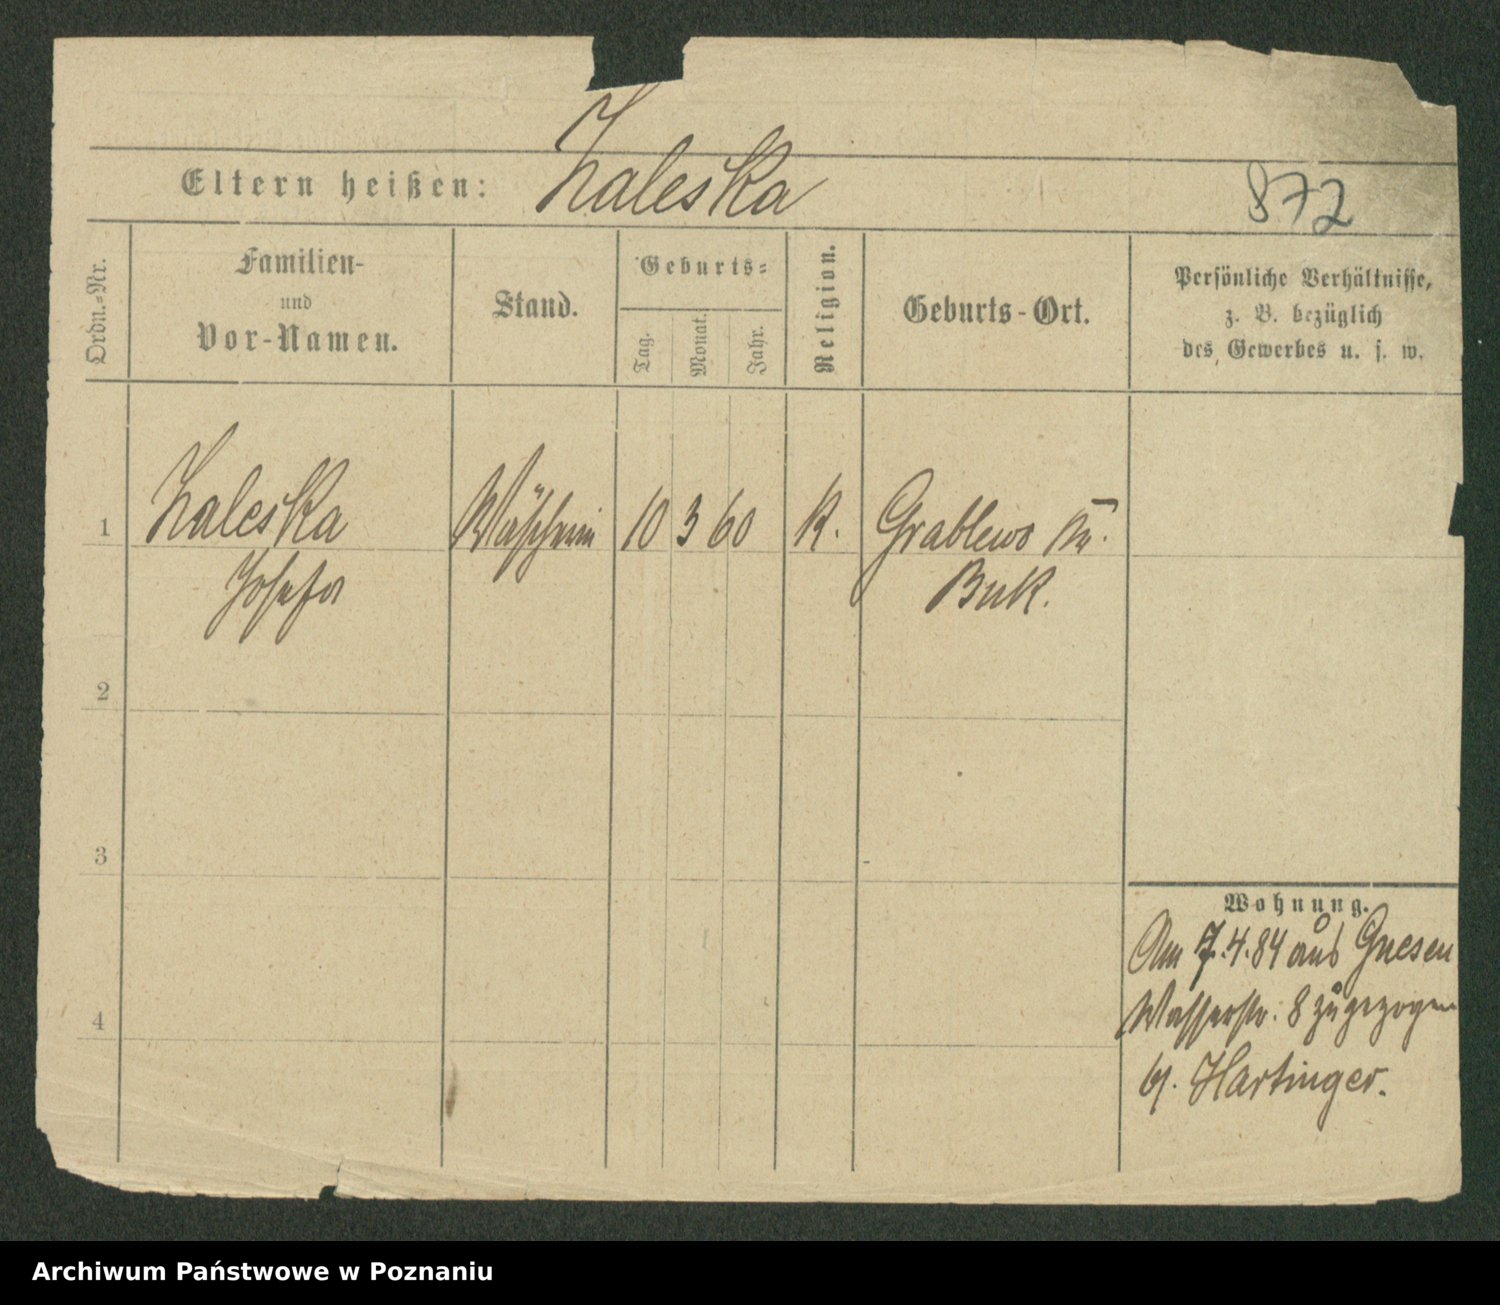 Eltern heißen: Zaleska
872
Ordn.-Nr.
Familien-
und
Vor-Namen.
Stand.
Geburts-
Tag.
Monat.
Jahr.
Religion.
Geburts-Ort.
Persönliche Verhältnisse,
z. B. bezüglich
des Gewerbes u. s. w.
1 Zaleska Wäscherin 10 3 60 K. Grablewo Kr.
Josefa Buk.
2
3
4
Wohnung.
Am 7.4.84 aus Gnesen
Wasserstr. 8 zugezogen
b/. Hartinger.
Archiwum Państwowe w Poznaniu